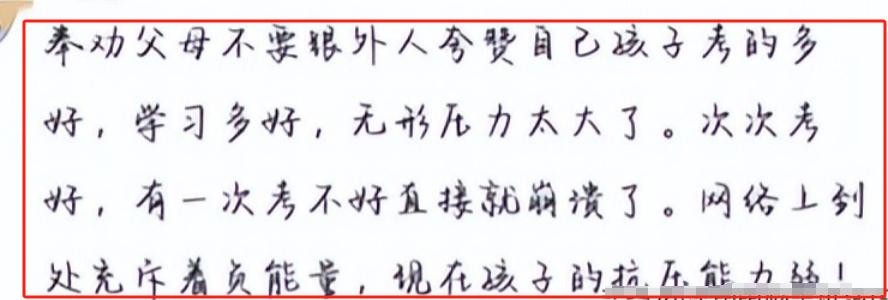 奉劝父母不要跟外人夸赞自己孩子考的多
好，学习多好，无形压力太大了。次次考
好，有一次考不好直接就崩溃了。网络上到
处充斥着负能量，现在孩子的抗压能力弱！